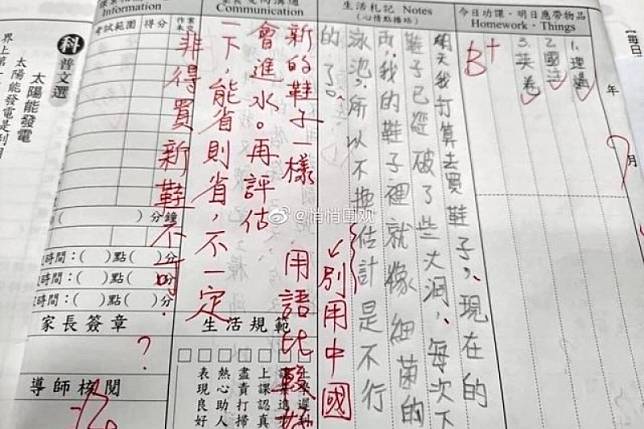 今日功課‧明日應帶物品
Homework‧Things
1.
2.國
3.英卷
年
月
生活札記 Notes
(心情點播站)
B+
明天我打算去買鞋子,現在的
鞋子已經破了些大洞,每次下
雨,我的鞋子裡就像細菌的
泳池,所以不換估計是不行
的了。
別用中國
用語比較好
新的鞋子一樣
會進水。再評估
一下,能省則省,不一定
非得買新鞋不可。
Communication
生活規範
上課認真
盡責打掃
熱心助人
表現良好
Information
考試範圍
得分
( )分鐘
時間:( )點( )分
時間:( )點( )分
時間:( )點( )分
家長簽章
?
導師核閱
科普文選
太陽能發電
太陽能發電是利用
界上第一
每日
@悄悄围观